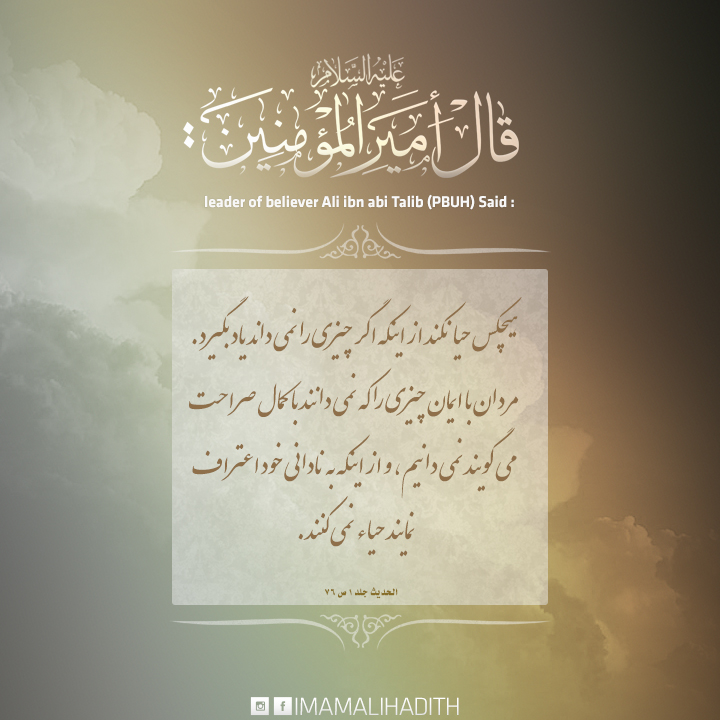 علیه السلام
قال أمیر المؤمنین :
leader of believer Ali ibn abi Talib (PBUH) Said :
هیچکس حیا نکند از اینکه اگر چیزی را نمی داند یاد بگیرد.
مردان با ایمان چیزی را که نمی دانند با کمال صراحت
می گویند نمی دانیم ، و از اینکه به نادانی خود اعتراف
نمایند حیاء نمی کنند.
الحدیث جلد ۱ ص ۷۶
IMAMALIHADITH